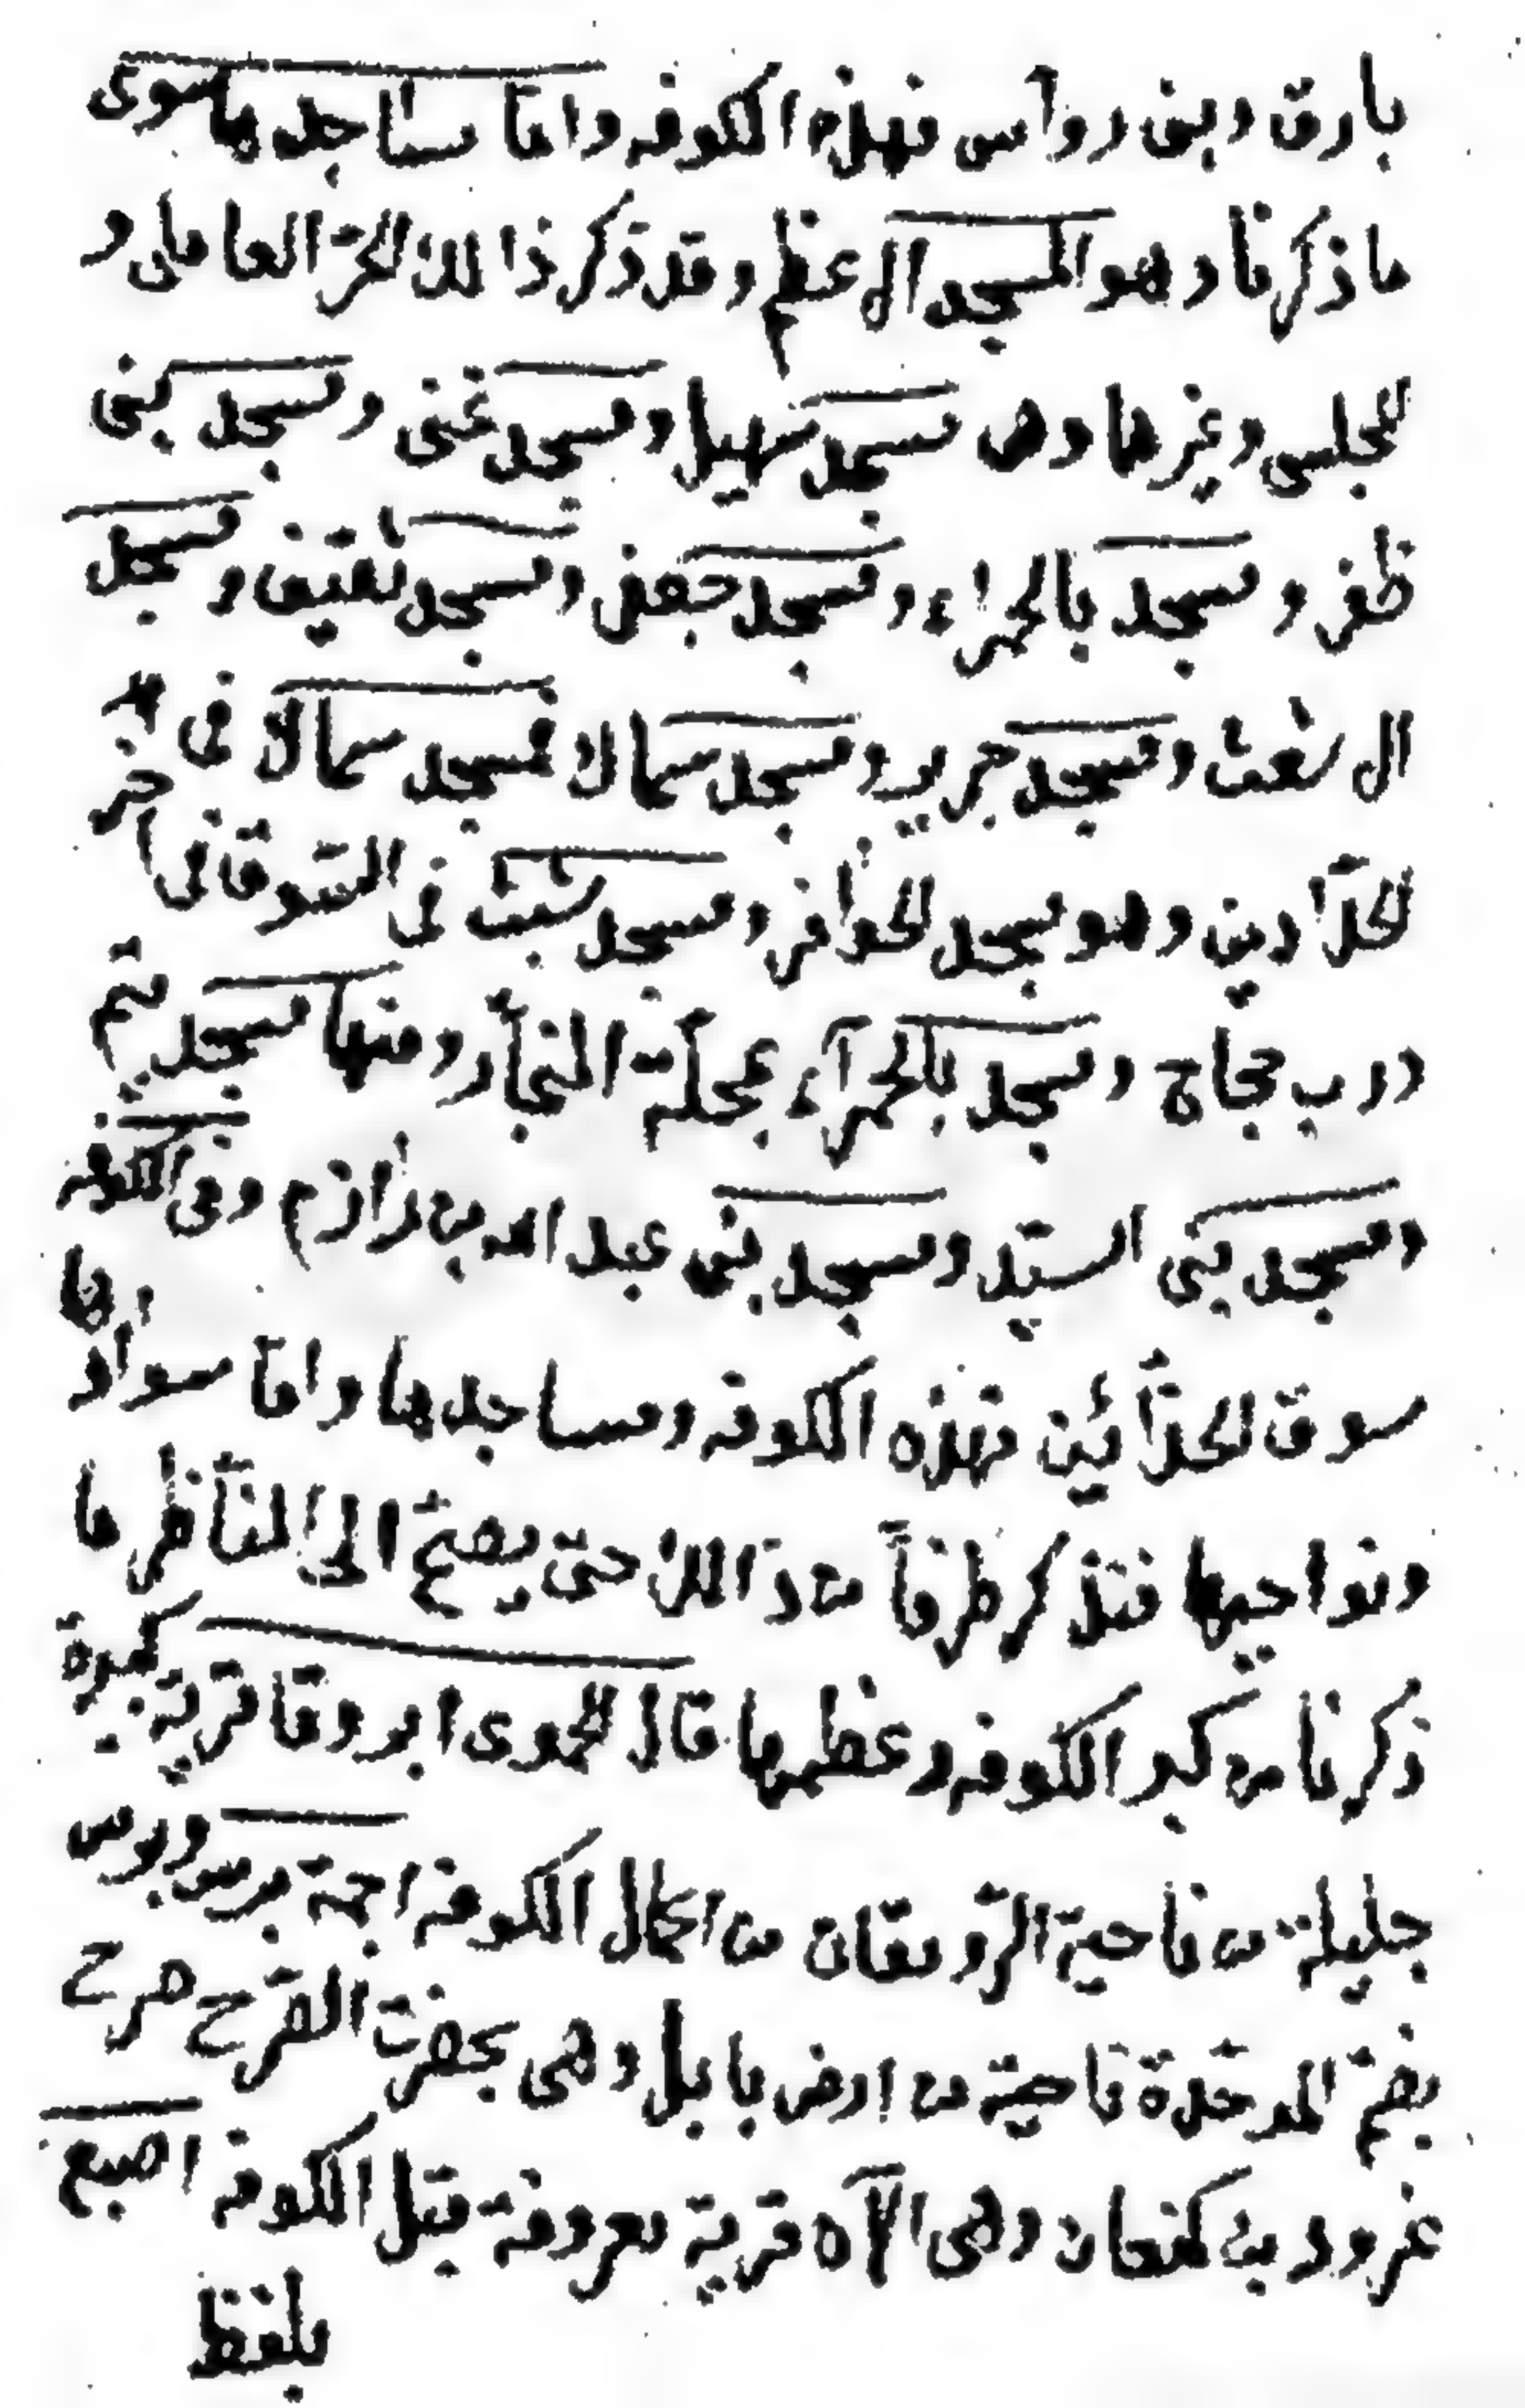 بارق وبنى رواس فهذه الكوفه واما مساجدها سوى
ما ذكرنا وهو المسجد الاعظم وقد ذكر ذالك الحرّ العاملى و
المجلسى وغيرهما وهى مسجد سهيل ومسجد غنى ومسجد بنى
ظفر ومسجد بالحمراء ومسجد جعفى ومسجد ثقيف ومسجد
الاشعث ومسجد جرير ومسجد سماك فمسجد سماك فى
الحدّادين وهو مسجد الحوافر ومسجد شبث فى السّوق فى اخر
درب حجاج ومسجد بالحمرآء بمحلّة النجّار ومنها مسجد تيم
ومسجد بنى السيّد ومسجد بنى عبد الله بن رازم وفى الكوفه
سوق الحذّائين فهذه الكوفه ومساجدها واما سوادها
ونواحيها فنذكر طرفاً من ذالك حتى يصحّ الى النّاظر ما
ذكرنا من كبر الكوفه وعظمها قال الحموى ابروقا قرية كبيرة
جليلة من ناحية الرّومقان من اعمال الكوفه اجمة برس وبرس
بضمّ الموحّدة ناحية من ارض بابل وهى بحضرت الصّرح صرح
نمرود بن كنعان وهى الآن قرية معروفة قبل الكوفه اصبع
بلفظ